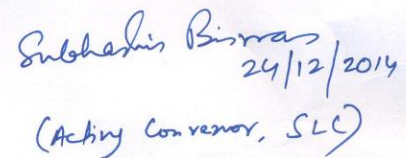 Subhashis Biswas
24/12/2014
(Acting Convenor, SLC)